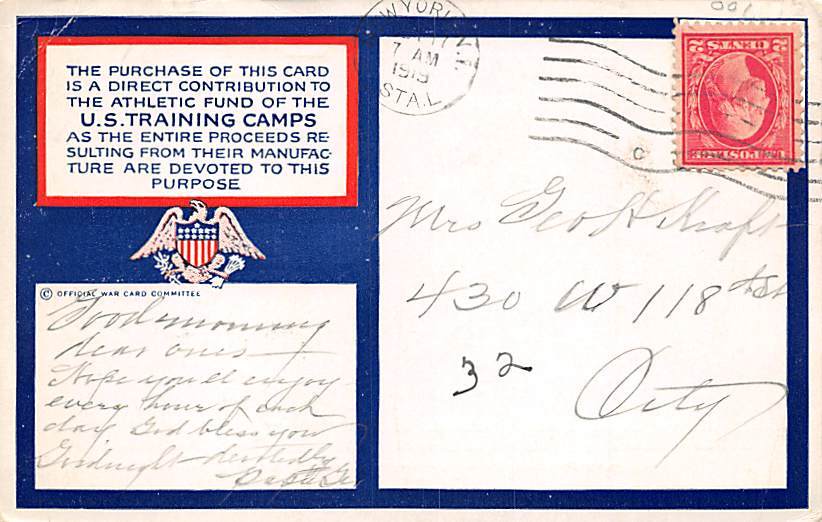 THE PURCHASE OF THIS CARD
IS A DIRECT CONTRIBUTION TO
THE ATHLETIC FUND OF THE
U.S. TRAINING CAMPS
AS THE ENTIRE PROCEEDS RE-
SULTING FROM THEIR MANUFAC-
TURE ARE DEVOTED TO THIS
PURPOSE
© OFFICIAL WAR CARD COMMITTEE
Good morning
dear ones
Hope you'll enjoy
every hour of each
day God bless you
Goodnight devotedly
W YORK, N.Y.
7 AM
1919
STA. L
2 CENTS 2
Mrs Geo H Kraft
430 W 118th St
32
City